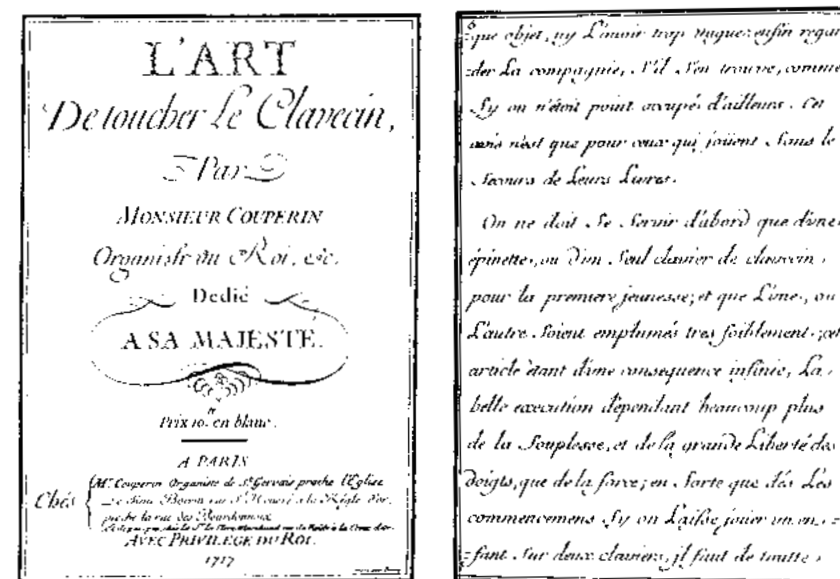 L'ART
De toucher Le Clavecin,
Par
MONSIEUR COUPERIN
Organiste du Roi, etc.
Dedié
A SA MAJESTÉ.
Prix 10.tt en blanc.
A PARIS
Chés
Mr. Couperin Organiste de St. Gervais proche l'Eglise
Le Sieur Boivin rue St. Honoré à la Régle d'or,
proche la rue des Bourdonnois
AVEC PRIVILEGE DU ROI.
1717
6
=que objet, ny L'avoir trop vague: enfin regar
=der La compagnie, S'il S'en trouve, comme
Sy on n'étoit point occupé d'ailleurs. Cet
avis n'est que pour ceux qui joüent Sans le
Secours de Leurs Livres.
On ne doit Se Servir d'abord que d'une
épinette, ou d'un Seul clavier de clavecin
pour la premiere jeunesse; et que L'une, ou
L'autre Soient emplumés tres foiblement; cet
article étant d'une consequence infinie, La
belle execution dépendant beaucoup plus
de la Souplesse, et de la grande Liberté des
doigts, que de la force; en Sorte que dés Les
commencemens Sy on Laisse joüer un en=
=fant Sur deux claviers, il faut de toutte